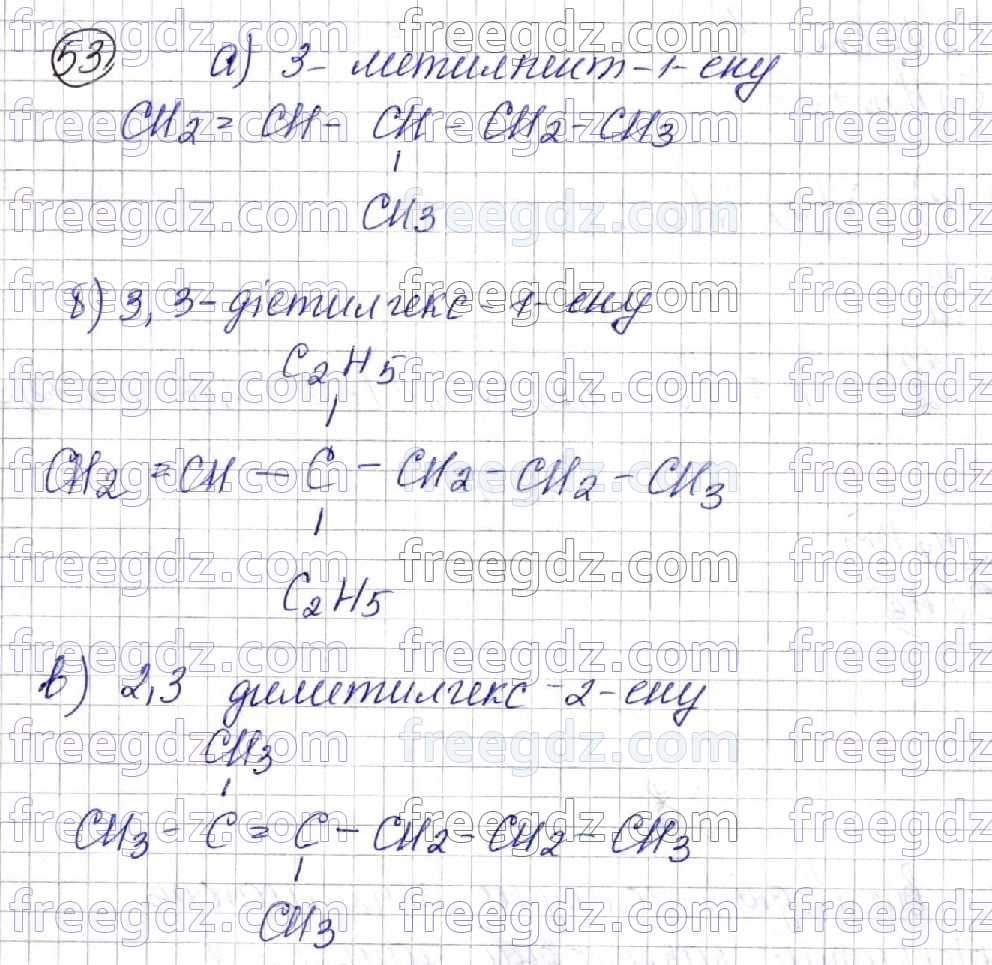 53. а) 3- метилпент-1-ену
CH2 = CH - CH - CH2 - CH3
CH3
б) 3, 3-діетилгекс-1-ену
C2H5
CH2 = CH - C - CH2 - CH2 - CH3
C2H5
в) 2,3 диметилгекс-2-ену
CH3
CH3 - C = C - CH2 - CH2 - CH3
CH3
freegdz.com